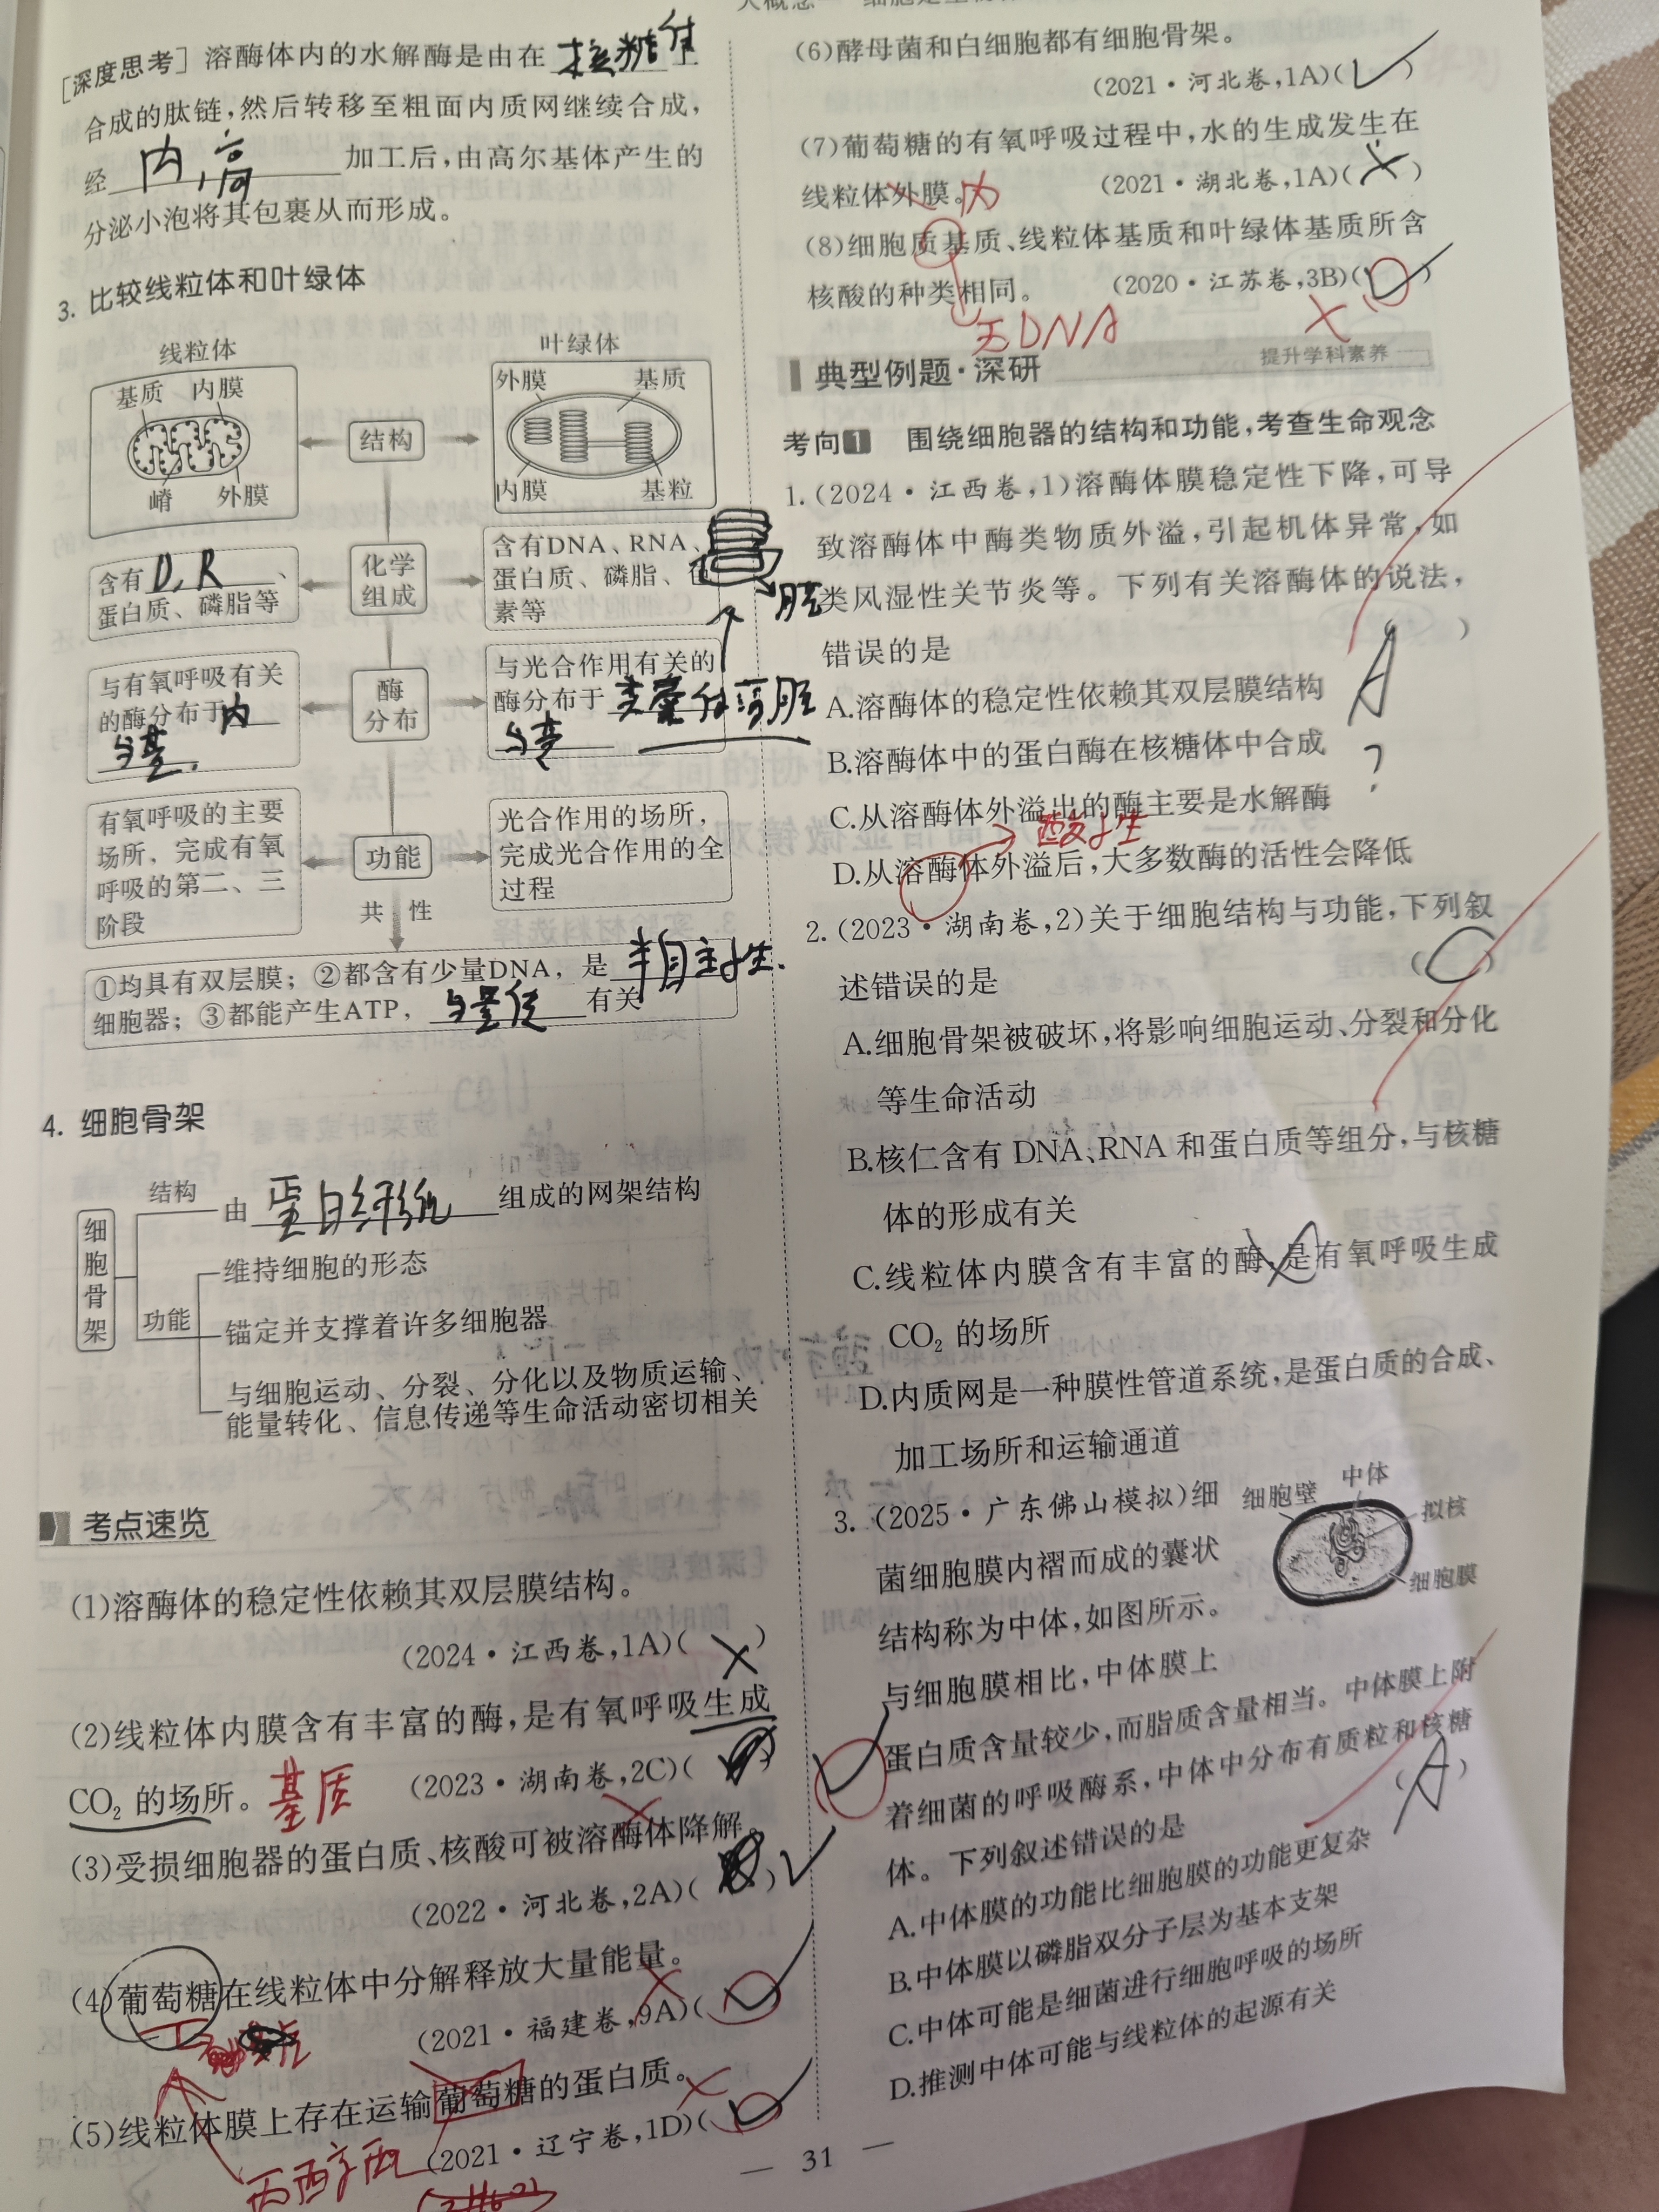 [深度思考] 溶酶体内的水解酶是由在 核糖体 上
合成的肽链,然后转移至粗面内质网继续合成,
经 内,高 加工后,由高尔基体产生的
分泌小泡将其包裹从而形成。
3. 比较线粒体和叶绿体
线粒体
叶绿体
基质 内膜
嵴 外膜
结构
外膜 基质
内膜 基粒
含有 D, R 、
蛋白质、磷脂等
化学
组成
含有DNA、RNA、
蛋白质、磷脂、色
素等
膜
与有氧呼吸有关
的酶分布于 内
与基.
酶
分布
与光合作用有关的
酶分布于 类囊体薄膜
与基
有氧呼吸的主要
场所、完成有氧
呼吸的第二、三
阶段
功能
光合作用的场所,
完成光合作用的全
过程
共性
①均具有双层膜;②都含有少量DNA,是 半自主性.
细胞器;③都能产生ATP, 与量 有关
4. 细胞骨架
细胞骨架
结构
由 蛋白纤维 组成的网架结构
功能
维持细胞的形态
锚定并支撑着许多细胞器
与细胞运动、分裂、分化以及物质运输、
能量转化、信息传递等生命活动密切相关
考点速览
(1)溶酶体的稳定性依赖其双层膜结构。
(2024·江西卷,1A)( × )
(2)线粒体内膜含有丰富的酶,是有氧呼吸生成
CO₂ 的场所。 基质 (2023·湖南卷,2C)( )
(3)受损细胞器的蛋白质、核酸可被溶酶体降解。
(2022·河北卷,2A)( ) ✓
(4)葡萄糖在线粒体中分解释放大量能量。
(2021·福建卷,9A)( ✓ ) ×
(5)线粒体膜上存在运输葡萄糖的蛋白质。
丙酮酸 (2021·辽宁卷,1D)( ✓ ) ×
(6)酵母菌和白细胞都有细胞骨架。
(2021·河北卷,1A)( ✓ )
(7)葡萄糖的有氧呼吸过程中,水的生成发生在
线粒体外膜。 内 (2021·湖北卷,1A)( × )
(8)细胞质基质、线粒体基质和叶绿体基质所含
核酸的种类相同。 (2020·江苏卷,3B)( ✓ )
无DNA ×
典型例题·深研 提升学科素养
考向1 围绕细胞器的结构和功能,考查生命观念
1.(2024·江西卷,1)溶酶体膜稳定性下降,可导
致溶酶体中酶类物质外溢,引起机体异常,如
类风湿性关节炎等。下列有关溶酶体的说法,
错误的是 ( A )
A.溶酶体的稳定性依赖其双层膜结构
B.溶酶体中的蛋白酶在核糖体中合成 ?
C.从溶酶体外溢出的酶主要是水解酶
酸性
D.从溶酶体外溢后,大多数酶的活性会降低
2.(2023·湖南卷,2)关于细胞结构与功能,下列叙
述错误的是 ( C )
A.细胞骨架被破坏,将影响细胞运动、分裂和分化
等生命活动
B.核仁含有 DNA、RNA 和蛋白质等组分,与核糖
体的形成有关
C.线粒体内膜含有丰富的酶,是有氧呼吸生成
CO₂ 的场所
D.内质网是一种膜性管道系统,是蛋白质的合成、
加工场所和运输通道
3.(2025·广东佛山模拟)细
菌细胞膜内褶而成的囊状
结构称为中体,如图所示。
细胞壁 中体
拟核
细胞膜
与细胞膜相比,中体膜上
蛋白质含量较少,而脂质含量相当。中体膜上附
着细菌的呼吸酶系,中体中分布有质粒和核糖
体。下列叙述错误的是 ( A )
A.中体膜的功能比细胞膜的功能更复杂
B.中体膜以磷脂双分子层为基本支架
C.中体可能是细菌进行细胞呼吸的场所
D.推测中体可能与线粒体的起源有关
— 31 —